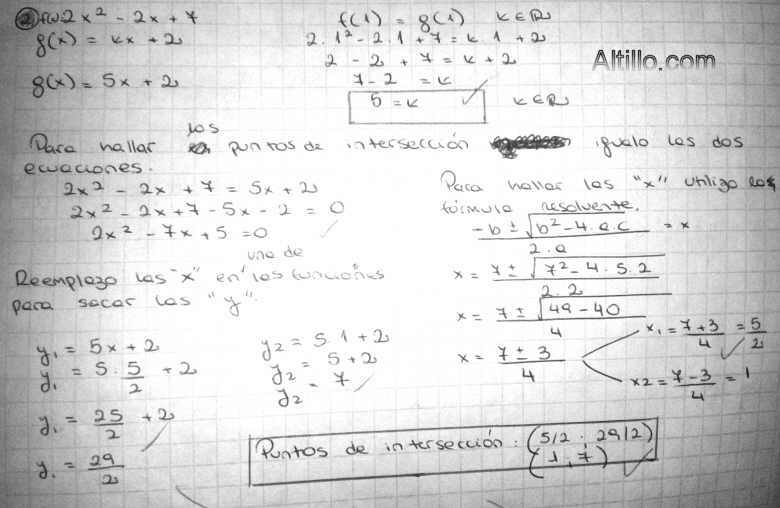 2) f(x)=2x² - 2x + 7
g(x) = kx + 2
g(x) = 5x + 2
f(1) = g(1) k∈R
2.1² - 2.1 + 7 = k.1 + 2
2 - 2 + 7 = k + 2
7 - 2 = k
5 = k ✓ k∈R
Altillo.com
Para hallar los puntos de intersección igualo las dos
ecuaciones.
2x² - 2x + 7 = 5x + 2
2x² - 2x + 7 - 5x - 2 = 0
2x² - 7x + 5 = 0 ✓
Para hallar las "x" utilizo la
fórmula resolvente.
-b ± √b² - 4.a.c / 2.a = x
x = 7 ± √7² - 4.5.2 / 2.2
x = 7 ± √49 - 40 / 4
x = 7 ± 3 / 4
x₁ = 7+3 / 4 = 5/2 ✓
x2 = 7-3 / 4 = 1
Reemplazo las "x" en una de las funciones
para sacar las "y".
y₁ = 5x + 2
y₁ = 5 . 5/2 + 2
y₁ = 25/2 + 2
y₁ = 29/2
y2 = 5.1 + 2
y2 = 5 + 2
y2 = 7
Puntos de intersección : (5/2 ; 29/2)
(1 ; 7) ✓